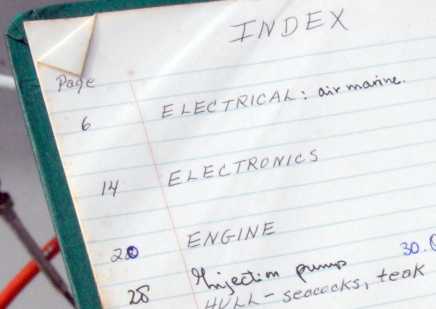 INDEX
Page
6 ELECTRICAL: air marine.
14 ELECTRONICS
20 ENGINE
Injection pump 30.
28 HULL - seacocks, teak